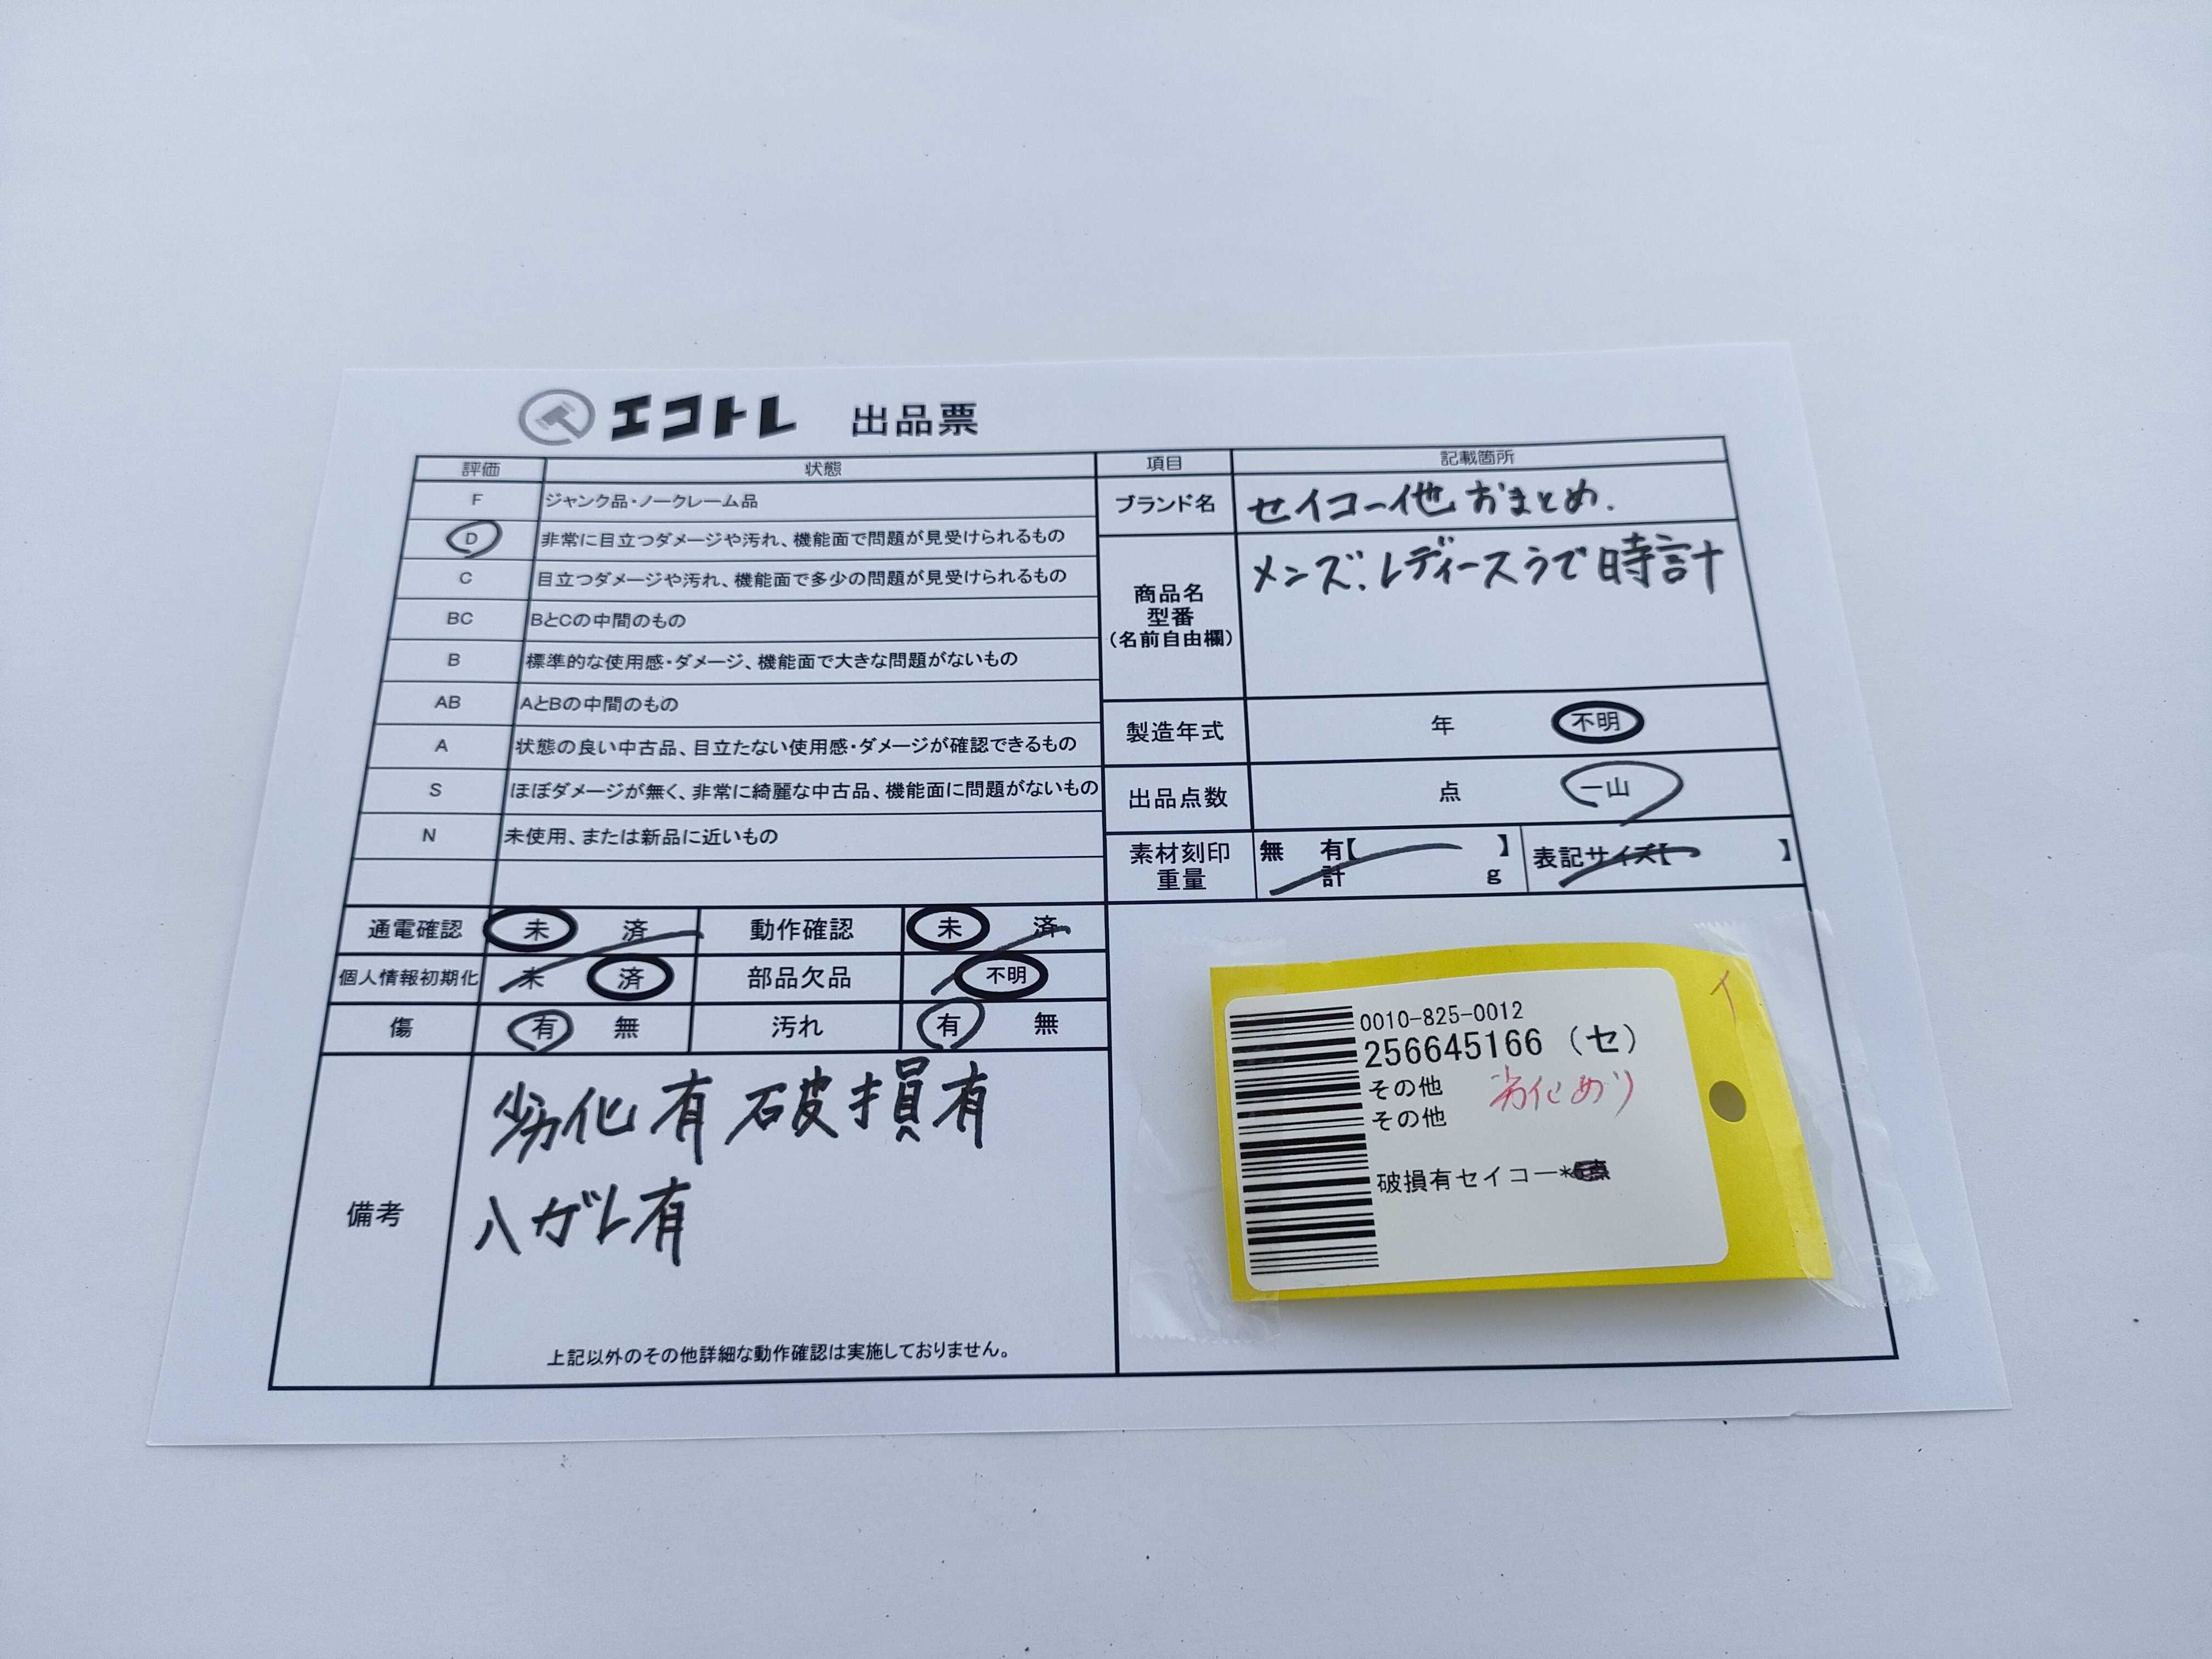 エコトレ 出品票
評価 状態
F ジャンク品・ノークレーム品
D 非常に目立つダメージや汚れ、機能面で問題が見受けられるもの
C 目立つダメージや汚れ、機能面で多少の問題が見受けられるもの
BC BとCの中間のもの
B 標準的な使用感・ダメージ、機能面で大きな問題がないもの
AB AとBの中間のもの
A 状態の良い中古品、目立たない使用感・ダメージが確認できるもの
S ほぼダメージが無く、非常に綺麗な中古品、機能面に問題がないもの
N 未使用、または新品に近いもの
項目 記載箇所
ブランド名 セイコー他 おまとめ.
商品名
型番
(名前自由欄)
メンズ.レディースうで時計
製造年式 年 不明
出品点数 点 一山
素材刻印 無 有【 】 表記サイズ【 】
重量 計 g
通電確認 未 済 動作確認 未 済
個人情報初期化 未 済 部品欠品 不明
傷 有 無 汚れ 有 無
備考
劣化有 破損有
ハガレ有
上記以外のその他詳細な動作確認は実施しておりません。
0010-825-0012
256645166 (セ)
その他 劣化あり
その他
破損有セイコー*